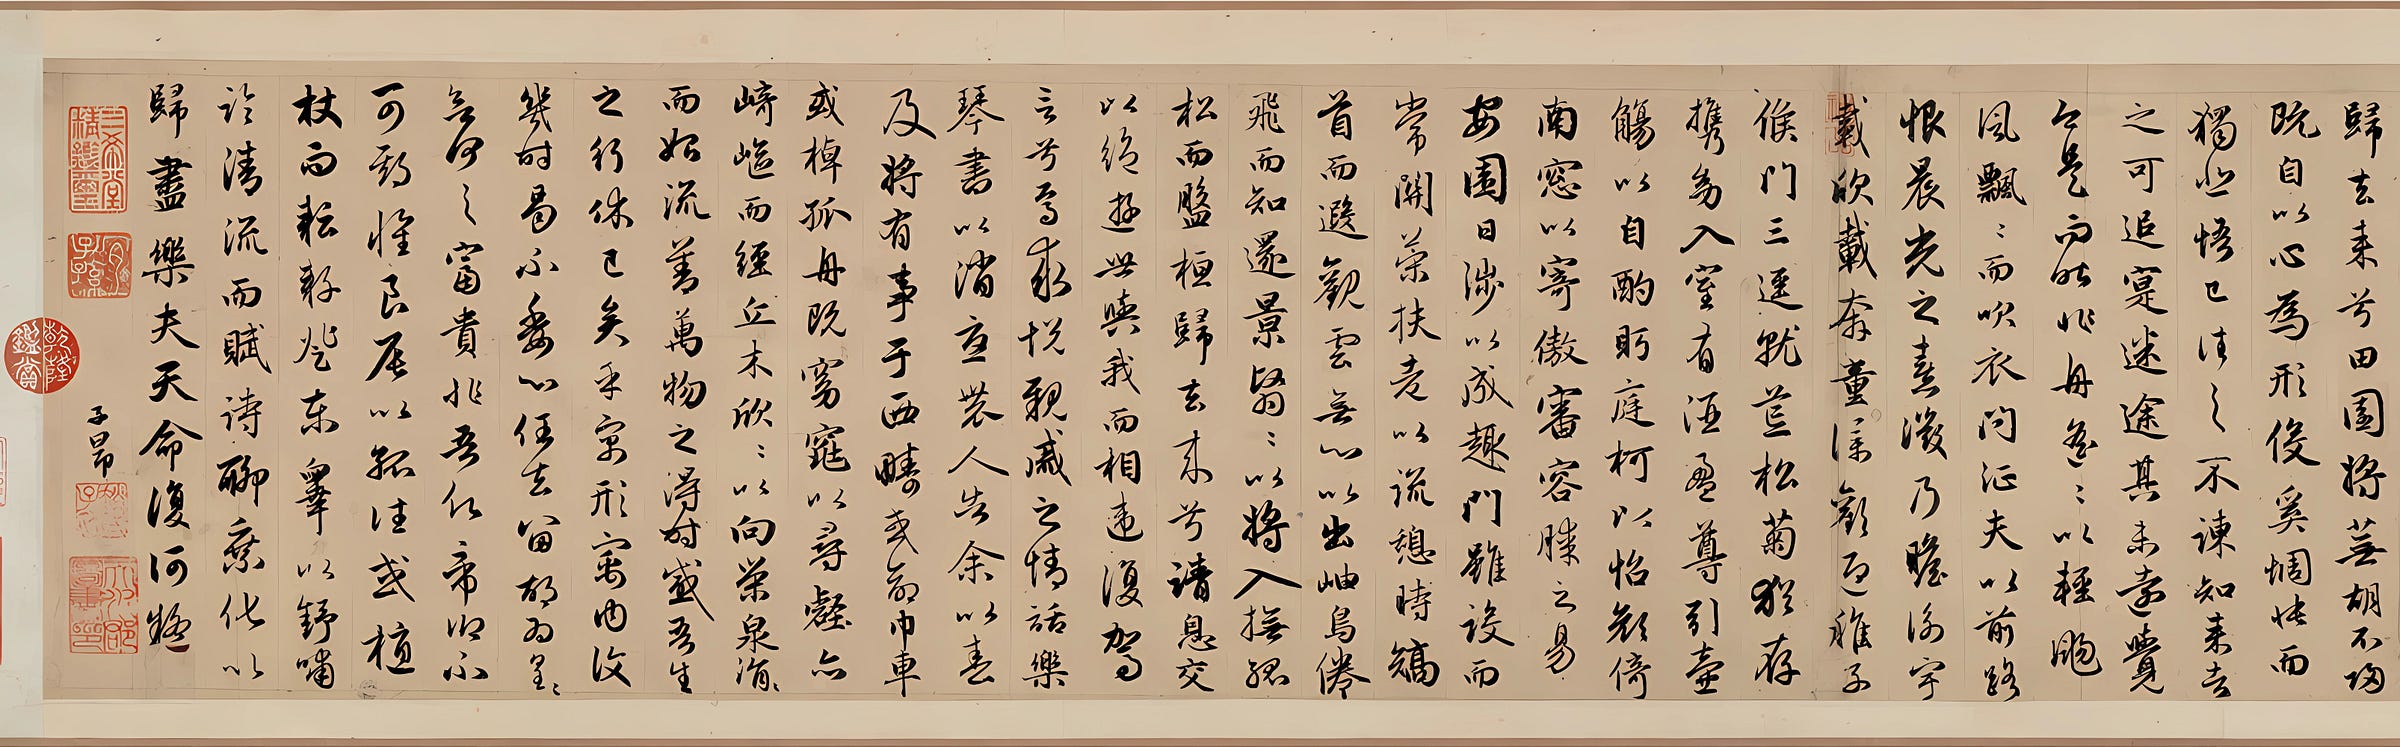 歸去来兮田園將蕪胡不歸
既自以心為形役奚惆悵而
獨悲悟已往之不諫知来者
之可追寔迷途其未遠覺
今是而昨非舟遥〻以輕颺
風飄〻而吹衣問征夫以前路
恨晨光之熹微乃瞻衡宇
載欣載奔童僕歡迎稚子
候門三逕就荒松菊猶存
携幼入室有酒盈尊引壺
觴以自酌眄庭柯以怡顔倚
南窓以寄傲審容膝之易
安園日涉以成趣門雖設而
常關策扶老以流憩時矯
首而遐觀雲無心以出岫鳥倦
飛而知還景翳〻以將入撫孤
松而盤桓歸去来兮請息交
以絶遊世與我而相違復駕
言兮焉求悦親戚之情話樂
琴書以消憂農人告余以春
及將有事于西疇或命巾車
或棹孤舟既窈窕以尋壑亦
崎嶇而經丘木欣〻以向榮泉涓〻
而始流善萬物之得時感吾生
之行休已矣乎寓形宇内復
幾時曷不委心任去留胡為遑〻
兮何之富貴非吾願帝鄉不
可期懷良辰以孤往或植
杖而耘耔登東皋以舒嘯
臨清流而賦詩聊乘化以
歸盡樂夫天命復何疑
子昂
三希堂精鑑璽
宜子孫
乾隆鑑賞